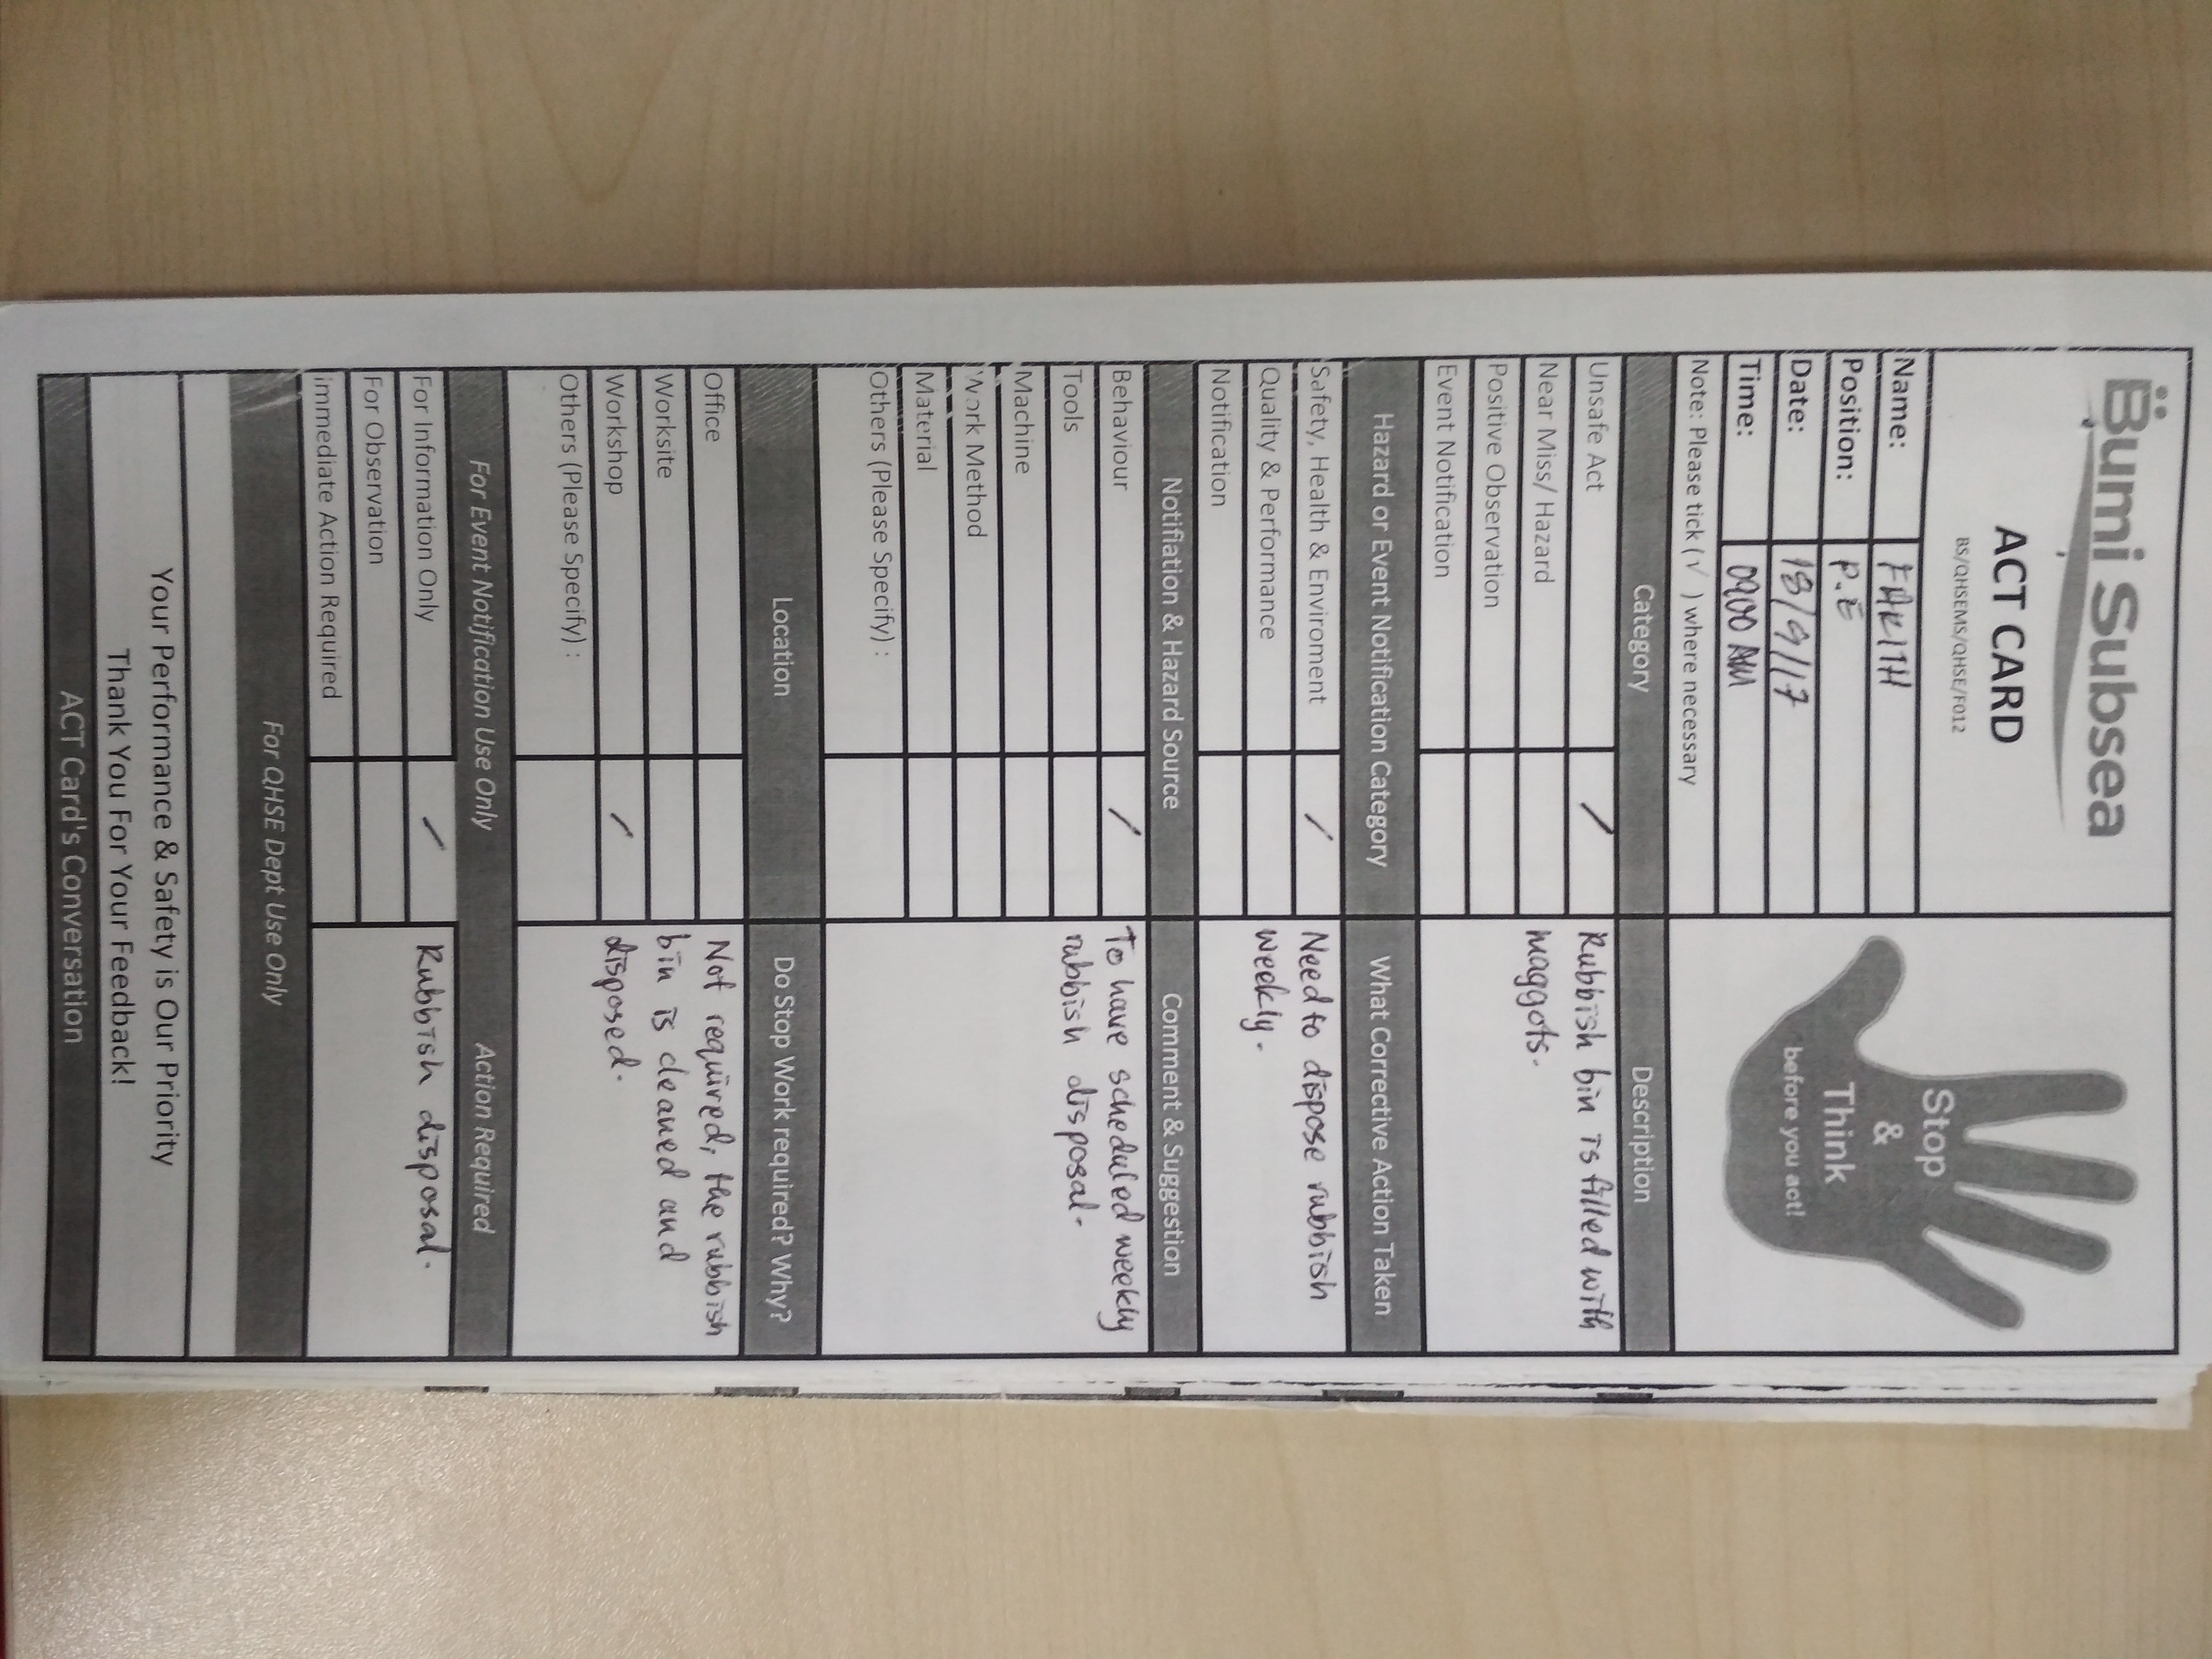 Bumi Subsea
ACT CARD
BS/QHSEMS/QHSE/F012
Stop
&
Think
before you act!
Name: FARITH
Position: P.E
Date: 18/9/17
Time: 0900 AM
Note: Please tick (√ ) where necessary
Category Description
Unsafe Act / Rubbish bin is filled with
Near Miss/ Hazard maggots.
Positive Observation
Event Notification
Hazard or Event Notification Category What Corrective Action Taken
Safety, Health & Enviroment / Need to dispose rubbish
Quality & Performance weekly.
Notification
Notifiation & Hazard Source Comment & Suggestion
Behaviour / To have scheduled weekly
Tools rubbish disposal.
Machine
Work Method
Material
Others (Please Specify) :
Location Do Stop Work required? Why?
Office Not required, the rubbish
Worksite bin is cleaned and
Workshop / disposed.
Others (Please Specify) :
For Event Notification Use Only Action Required
For Information Only / Rubbish disposal.
For Observation
immediate Action Required
For QHSE Dept Use Only
Your Performance & Safety is Our Priority
Thank You For Your Feedback!
ACT Card's Conversation